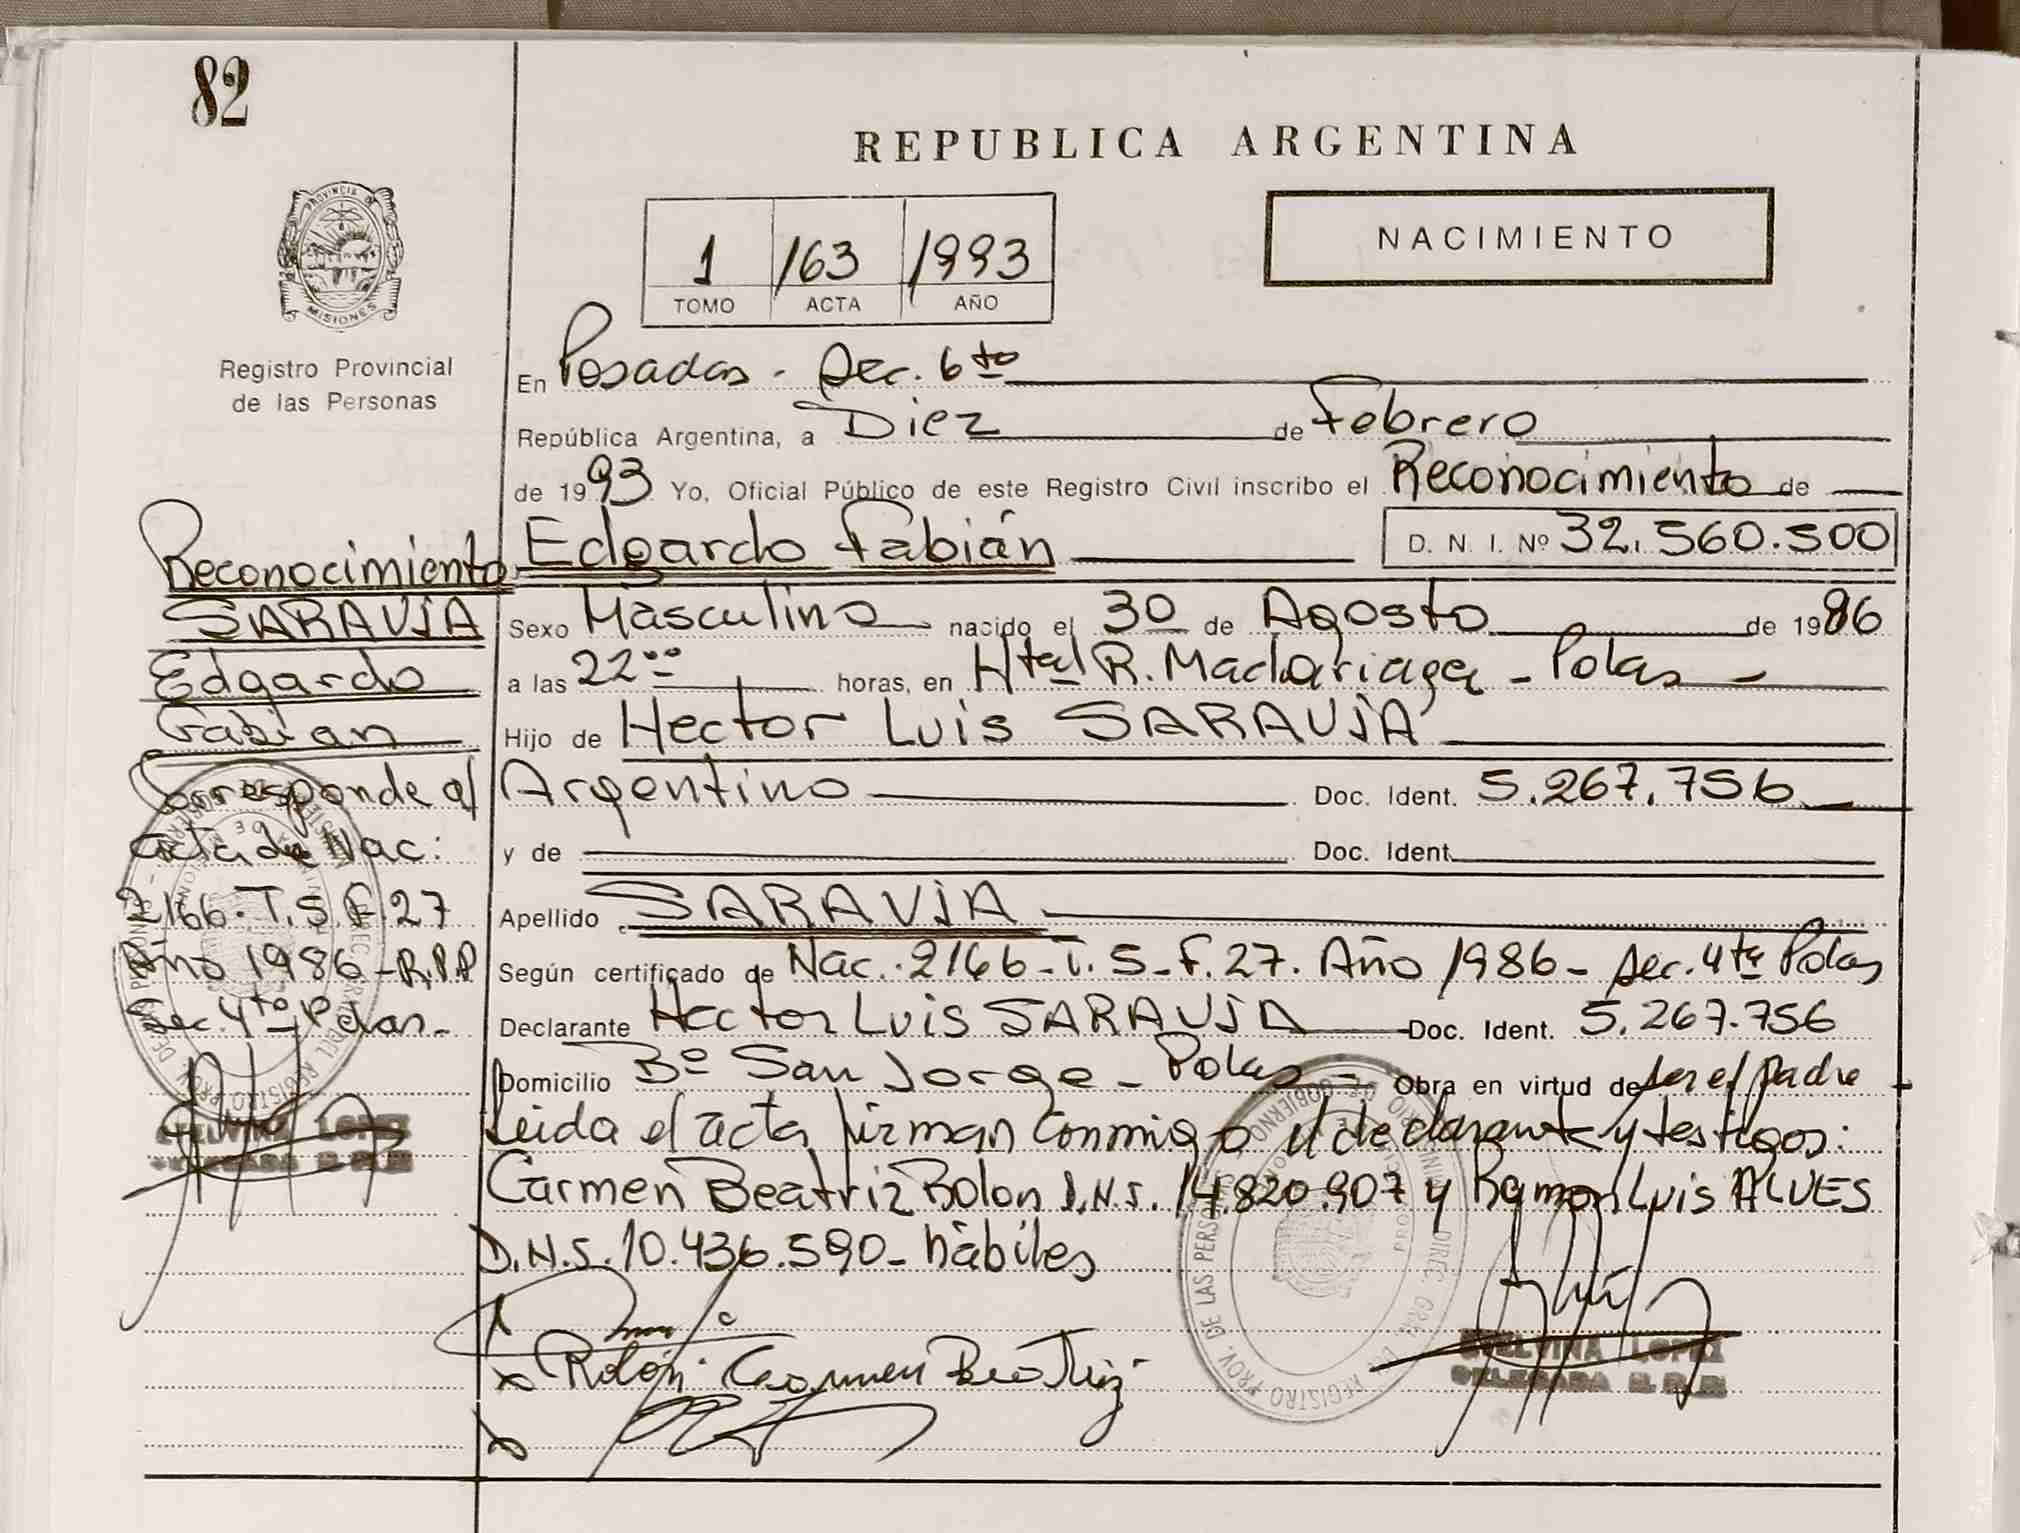 82
REPUBLICA ARGENTINA
PROVINCIA DE
MISIONES
Registro Provincial
de las Personas
1 163 1993
TOMO ACTA AÑO
NACIMIENTO
En Posadas - Sec. 6ta
República Argentina, a Diez de Febrero
de 1993 Yo, Oficial Público de este Registro Civil inscribo el Reconocimiento de
Edgardo Fabián D. N. I. Nº 32.560.500
Sexo Masculino nacido el 30 de Agosto de 1986
a las 22 oo horas, en Htal R. Madariaga - Pdas -
Hijo de Hector Luis SARAVIA
Argentino Doc. Ident. 5.267.756
y de Doc. Ident.
Apellido SARAVIA
Según certificado de Nac. 2166 - T. 5 - F. 27. Año 1986 - Sec. 4ta Pdas
Declarante Hector Luis SARAVIA Doc. Ident. 5.267.756
Domicilio Bº San Jorge - Pdas - Obra en virtud de ser el padre -
Leida el acta firman conmigo el declarante y testigos:
Carmen Beatriz Rolon D.N.I. 14.820.907 y Ramon Luis ALVES
D.N.I. 10.436.590 - hábiles
Rolón Carmen Beatriz
Reconocimiento
SARAVIA
Edgardo
Fabian
Corresponde al
acta de Nac:
2166. T. 5 F. 27
Año 1986 - R.P.P
Sec. 4ta Pdas -
LOPEZ
DELEGADA
LOPEZ
DELEGADA